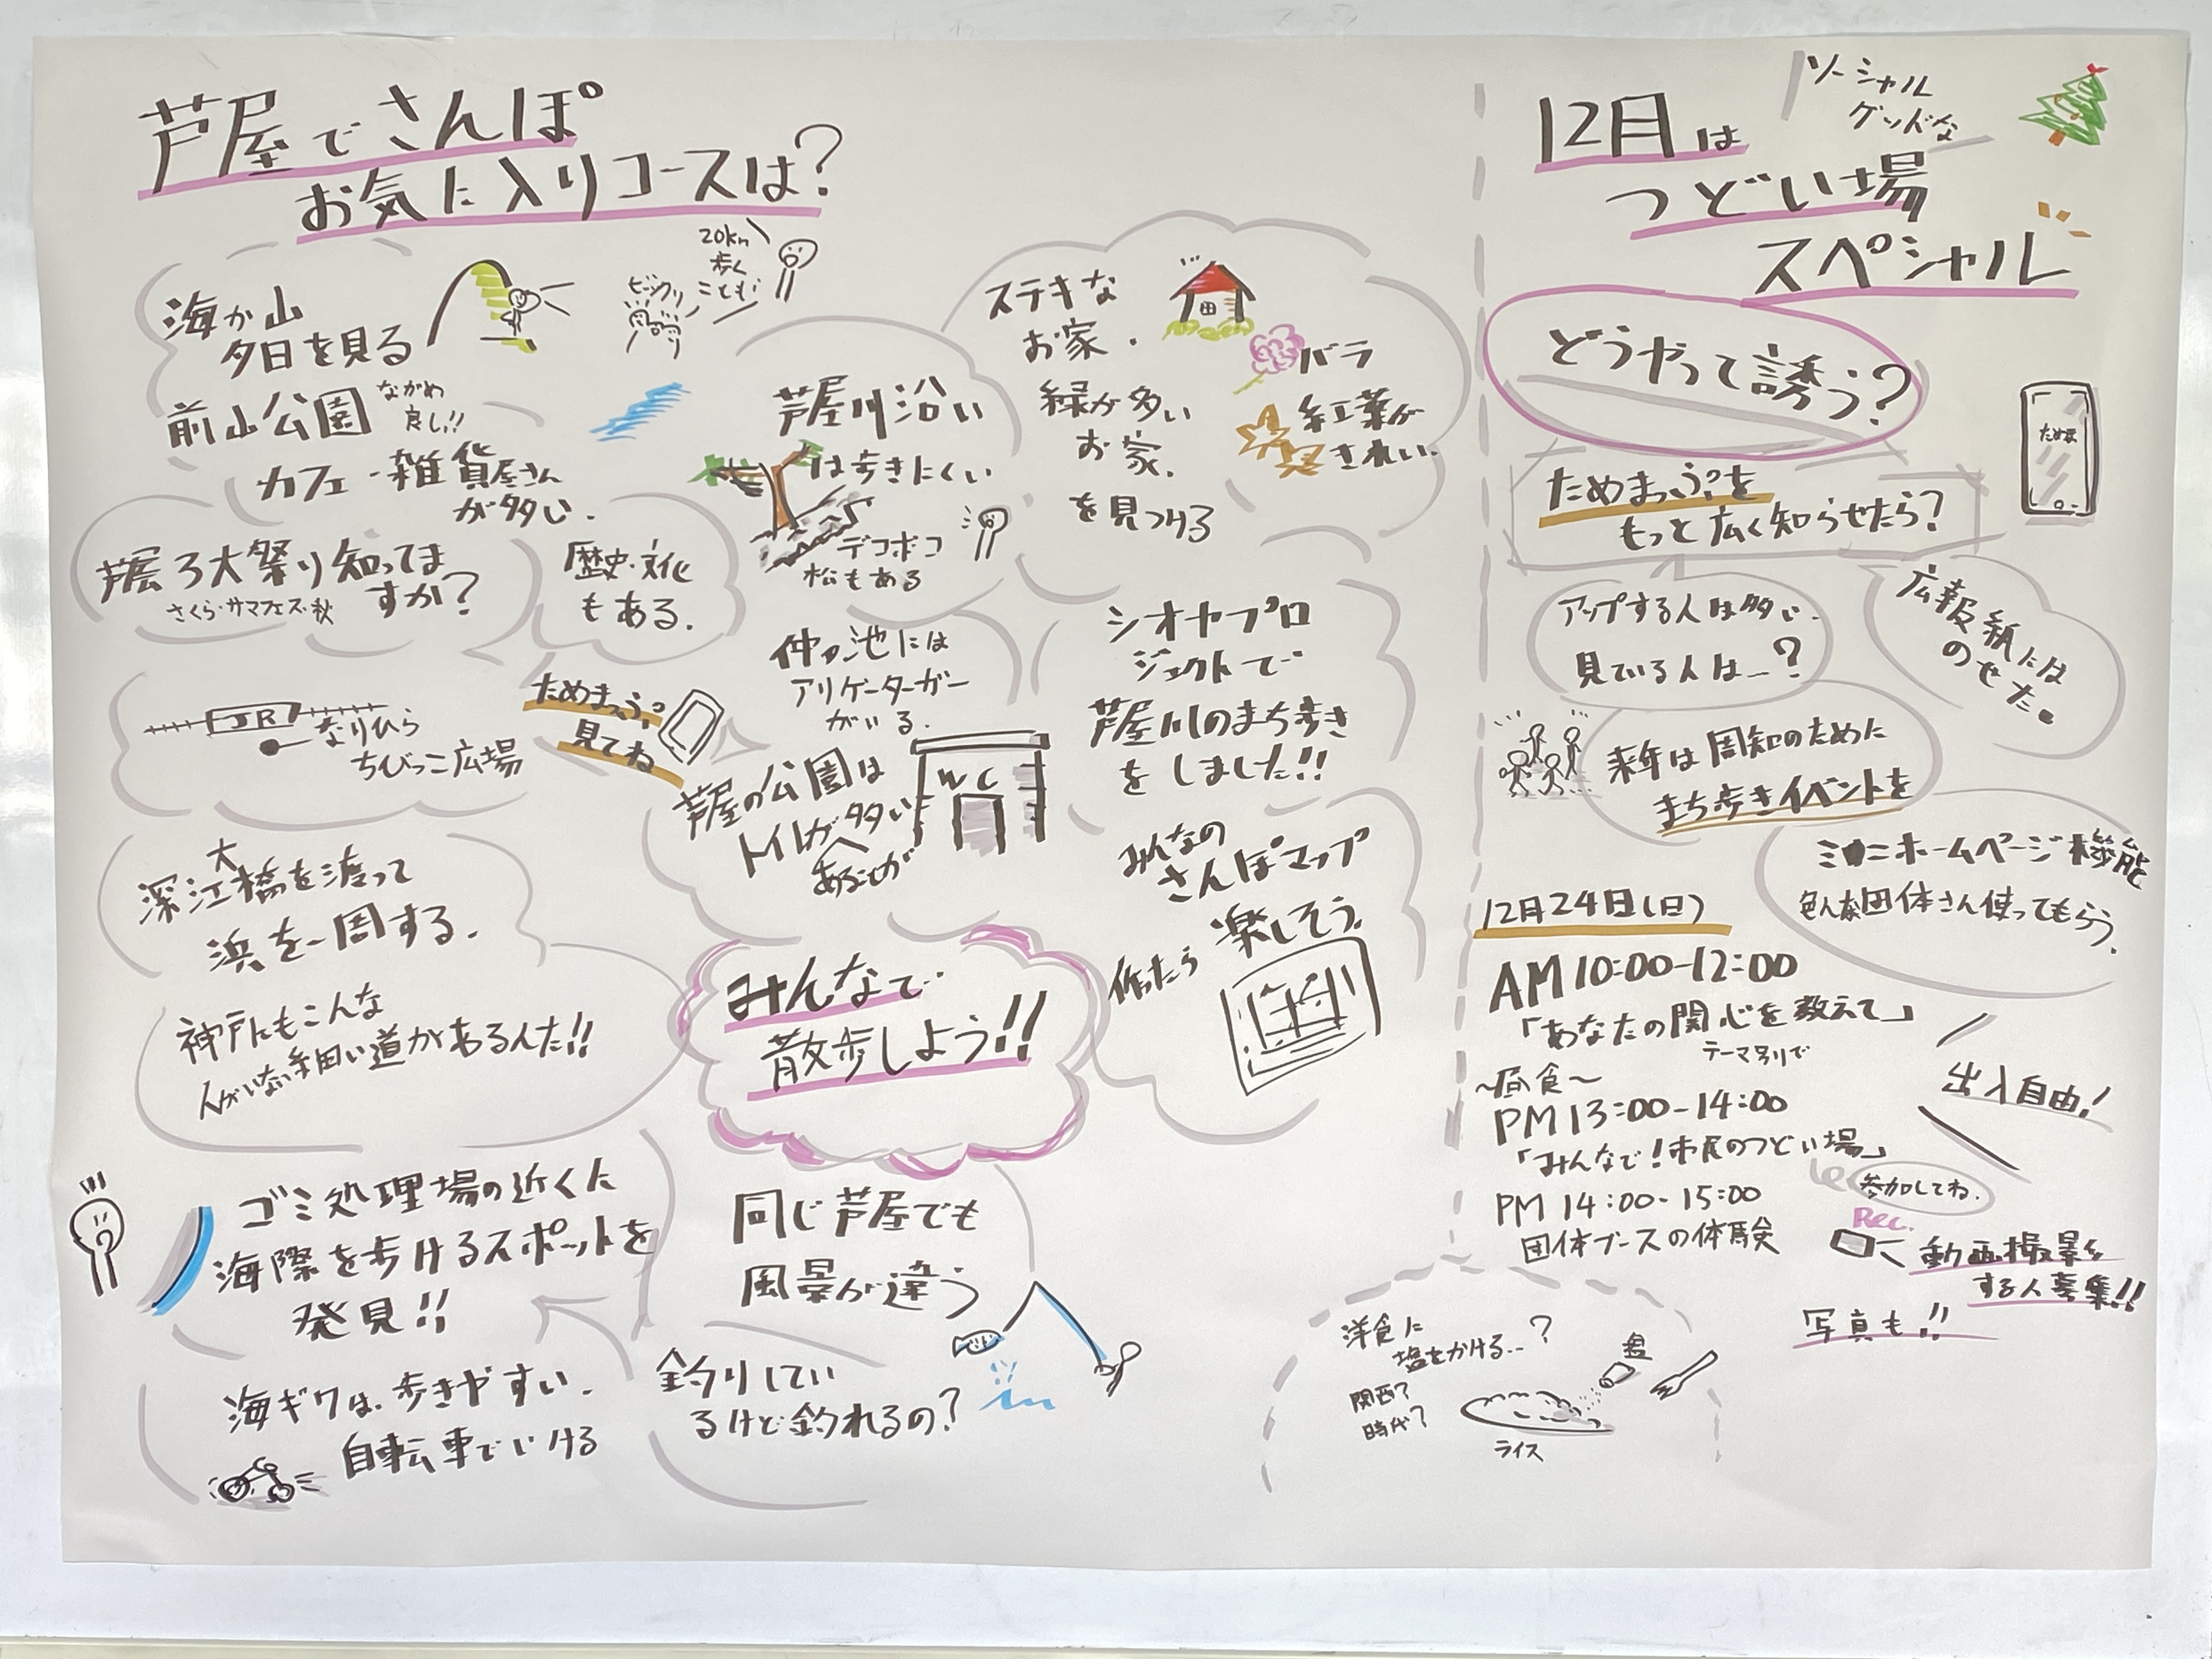 芦屋でさんぽ
お気に入りコースは?
海か山
夕日を見る
前山公園
ながめ
良し!!
カフェ・雑貨屋さん
が多い.
20km
歩く
ことも!
ビックリ
芦屋3大祭り知ってま
すか?
さくら・サマフェス・秋
歴史・文化
もある.
芦屋川沿い
は歩きにくい
デコボコ
松もある
ステキな
お家.
緑が多い
お家.
を見つける
バラ
紅葉が
きれい.
JR
なりひら
ちびっこ広場
ためまっぷ
見てね
仲ノ池には
アリゲーターガー
がいる.
芦屋の公園は
トイレが多い
あることが
WC
シオヤプロ
ジェクトで
芦屋川のまち歩き
をしました!!
みんなの
さんぽマップ
作ったら
楽しそう.
深江大橋を渡って
浜を一周する.
神戸にもこんな
人がいない細い道があるんだ!!
みんなで
散歩しよう!!
ゴミ処理場の近くに
海際を歩けるスポットを
発見!!
海ギワは.歩きやすい.
自転車でいける
同じ芦屋でも
風景が違う
釣りしてい
るけど釣れるの?
12月は
ソーシャル
グッドな
つどい場
スペシャル
どうやって誘う?
ためま
ためまっぷを
もっと広く知らせたら?
アップする人は多い.
見ている人は…?
広報紙には
のせた.
来年は周知のために
まち歩きイベントを
ミニホームページ機能
色んな団体さん使ってもらう.
12月24日(日)
AM10:00-12:00
「あなたの関心を教えて」
テーマ別で
~昼食~
PM13:00-14:00
「みんなで!市民のつどい場」
PM14:00-15:00
団体ブースの体験
出入自由!
参加してね.
Rec.
動画撮影
する人募集!!
写真も!!
洋食に
塩をかける…?
関西?
時代?
塩
ライス